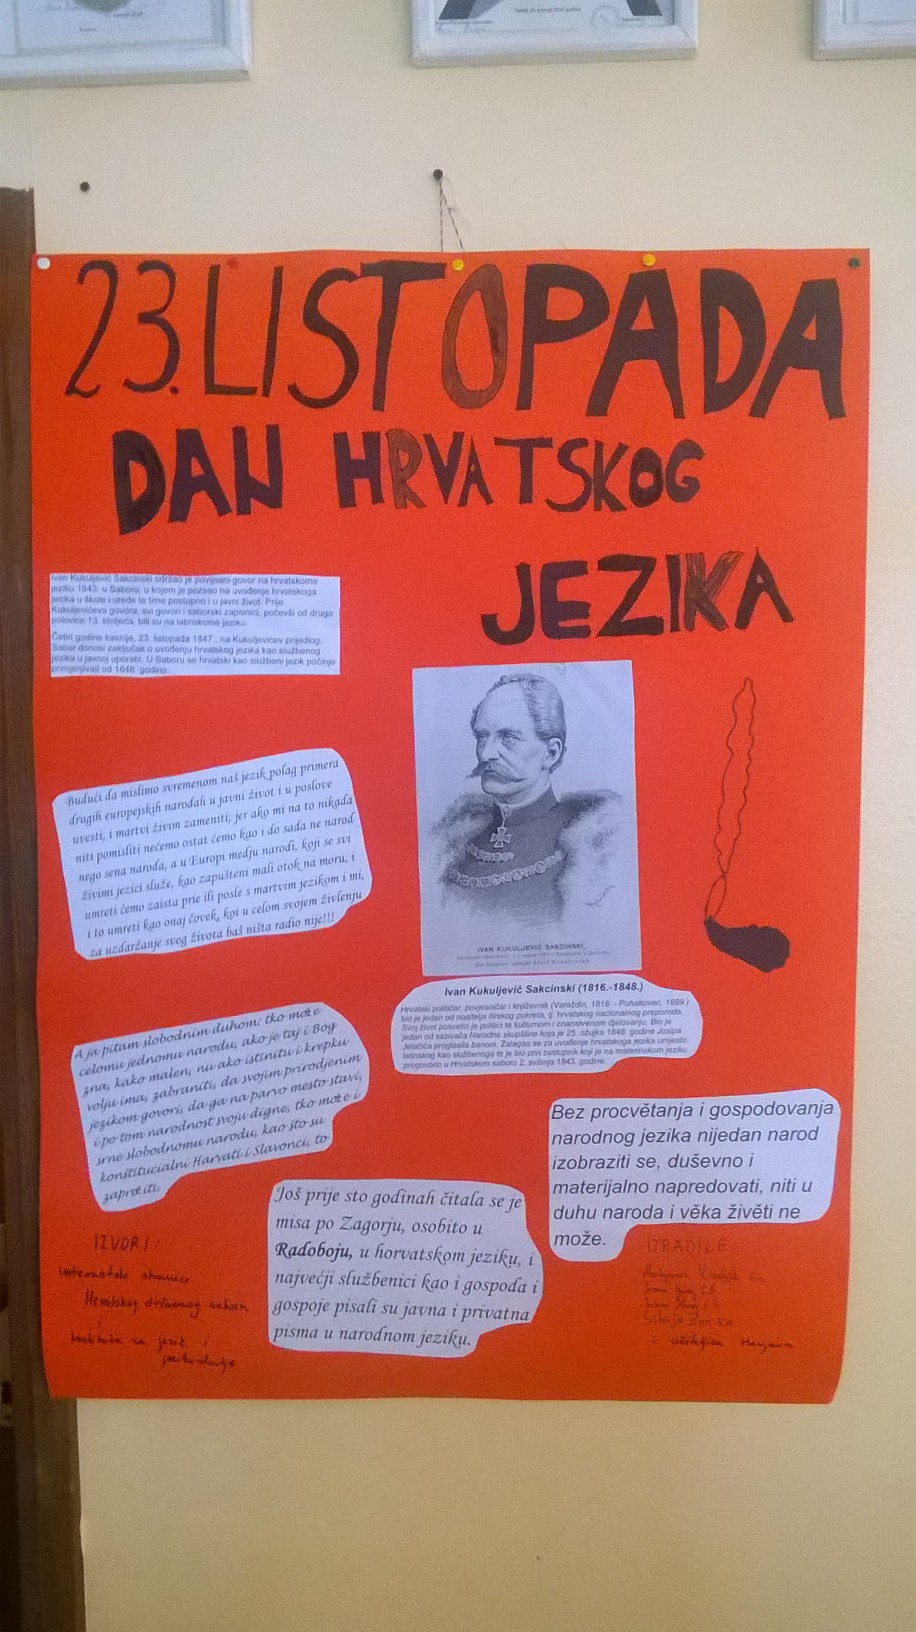 23. LISTOPADA
DAN HRVATSKOG
JEZIKA
Ivan Kukuljević Sakcinski održao je povijesni govor na hrvatskome
jeziku 1843. u Saboru, u kojem je pozvao na uvođenje hrvatskoga
jezika u škole i urede te time postupno i u javni život. Prije
Kukuljevićeva govora, svi govori i saborski zapisnici, počevši od druge
polovice 13. stoljeća, bili su na latinskome jeziku.
Četiri godine kasnije, 23. listopada 1847., na Kukuljevićev prijedlog,
Sabor donosi zaključak o uvođenju hrvatskog jezika kao službenog
jezika u javnoj uporabi. U Saboru se hrvatski kao službeni jezik počinje
primjenjivati od 1848. godine.
Budući da mislimo svremenom naš jezik polag primera
drugih europejskih narodah u javni život i u poslove
uvesti, i martvi živim zameniti; jer ako mi na to nikada
niti pomisliti nećemo ostat ćemo kao i do sada ne narod
nego sena naroda, a u Europi medju narodi, koji se svi
živimi jezici služe, kao zapušteni mali otok na moru, i
umreti ćemo zaista prie ili posle s martvim jezikom i mi,
i to umreti kao onaj čovek, koi u celom svojem življenju
za uzdaržanje svog života baš ništa radio nije!!!
IVAN KUKULJEVIĆ SAKCINSKI,
Ivan Kukuljević Sakcinski (1816.-1848.)
Hrvatski političar, povjesničar i književnik (Varaždin, 1816. - Puhakovec, 1889.)
bio je jedan od nositelja ilirskog pokreta, tj. hrvatskog nacionalnog preporoda.
Svoj život posvetio je politici te kulturnom i znanstvenom djelovanju. Bio je
jedan od sazivača Narodne skupštine koja je 25. ožujka 1848. godine Josipa
Jelačića proglasila banom. Zalagao se za uvođenje hrvatskoga jezika umjesto
latinskog kao službenoga te je bio prvi zastupnik koji je na materinskom jeziku
progovorio u Hrvatskom saboru 2. svibnja 1843. godine.
A ja pitam slobodnim duhom: tko može
celomu jednomu narodu, ako je taj i Bog
zna, kako malen, nu ako istinitu i krepku
volju ima, zabraniti, da svojim prirodjenim
jezikom govori, da ga na parvo mesto stavi,
i po tom narodnost svoju digne, tko može i
srne slobodnomu narodu, kao što su
konštitucialni Harvati i Slavonci, to
zaprětiti.
Bez procvětanja i gospodovanja
narodnog jezika nijedan narod
izobraziti se, duševno i
materijalno napredovati, niti u
duhu naroda i věka živěti ne
može.
Još prije sto godinah čitala se je
misa po Zagorju, osobito u
Radoboju, u horvatskom jeziku, i
najvećji službenici kao i gospoda i
gospoje pisali su javna i privatna
pisma u narodnom jeziku.
IZVORI:
internetske stranice
Hrvatskog državnog sabora
i
Instituta za jezik i
jezikoslovlje
IZRADILE:
i učiteljica